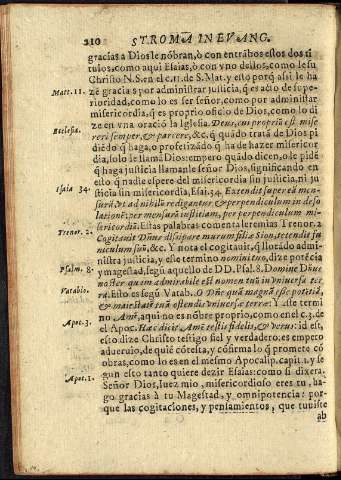 210 STROMA IN EVANG.
gracias a Dios le nõbran, ò con entrãbos estos dos ti
tulos, como aqui Esaias, ò con vno dellos, como Iesu
Christo N.S. en el c.11. de S. Mat. y esto porq̃ assi le ha
Matt. 11. ze gracia s por administrar justicia, q̃ es acto de supe-
rioridad, como lo es ser señor, como por administrar
misericordia, q̃ es proprio oficio de Dios, como lo di
Ecclesia. ze en vna oraciõ la Iglesia. Deus, cui propriũ est mise
reri semper, & parcere, &c. q̃ quãdo tratã de Dios pi
diẽdo q̃ haga, o profetizãdo q̃ ha de hazer misericor
dia, solo le llamã Dios: empero quãdo dicen, o le pidẽ
q̃ haga justicia llamanle señor Dios, significando en
esto q̃ nadie espere del misericordia sin justicia, ni ju
Esaia 34. sticia sin misericordia, Esai. 34. Extendit super eã men-
surã, vt ad nihilũ redigantur, & perpendiculum in deso
lationẽ: per mensurã iustitiam, per perpendiculum mi-
sericordiã. Estas palabras comenta Ieremias Trenor. 2
Trenor. 2. Cogitauit Dñus dissipare murum filiæ Sion, tetendit fu
niculum suũ, &c. Y nota el cogitauit, q̃ lleuãdo admini
stra justicia, y este termino nomini tuo, dize potẽcia
Psalm. 8. y magestad, segũ aquello de DD. Psal. 8. Domine Dñus
noster quam admirabile est nomen tuũ in vniuersa ter
Vatablo. ra. Esto es segũ Vatab. O Dñe quã magnã esse potẽtiã,
& maiestatẽ tuã ostendis vniuersæ terræ: Y este termi
Apoc. 3. no Amẽ, aqui no es nõbre proprio, como en el c. 3. de
el Apoc. Hæc dicit Amẽ testis fidelis, & verus: id est,
esto dize Christo testigo fiel y verdadero, es empero
adueruio, de quiẽ cõtesta, y cõfirma lo q̃ promete cõ
obras, como lo es en el mesmo Apocalip. capit. 1. y se
Apoc. 1. gun esto tanto quiere dezir Esaias: como si dixera.
Señor Dios, juez mio, misericordioso eres tu, ha-
go gracias à tu Magestad, y omnipotencia: por-
que las cogitaciones, y pensamientos, que tuuiste
ab